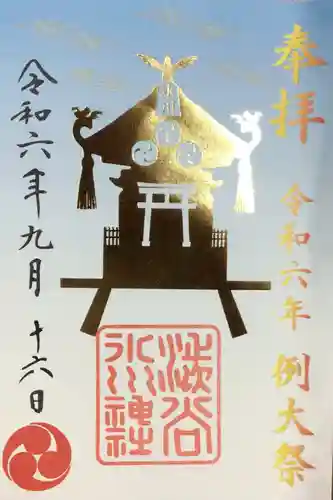 奉拝
令和六年 例大祭
澁谷
氷川神社
令和六年九月 十六日